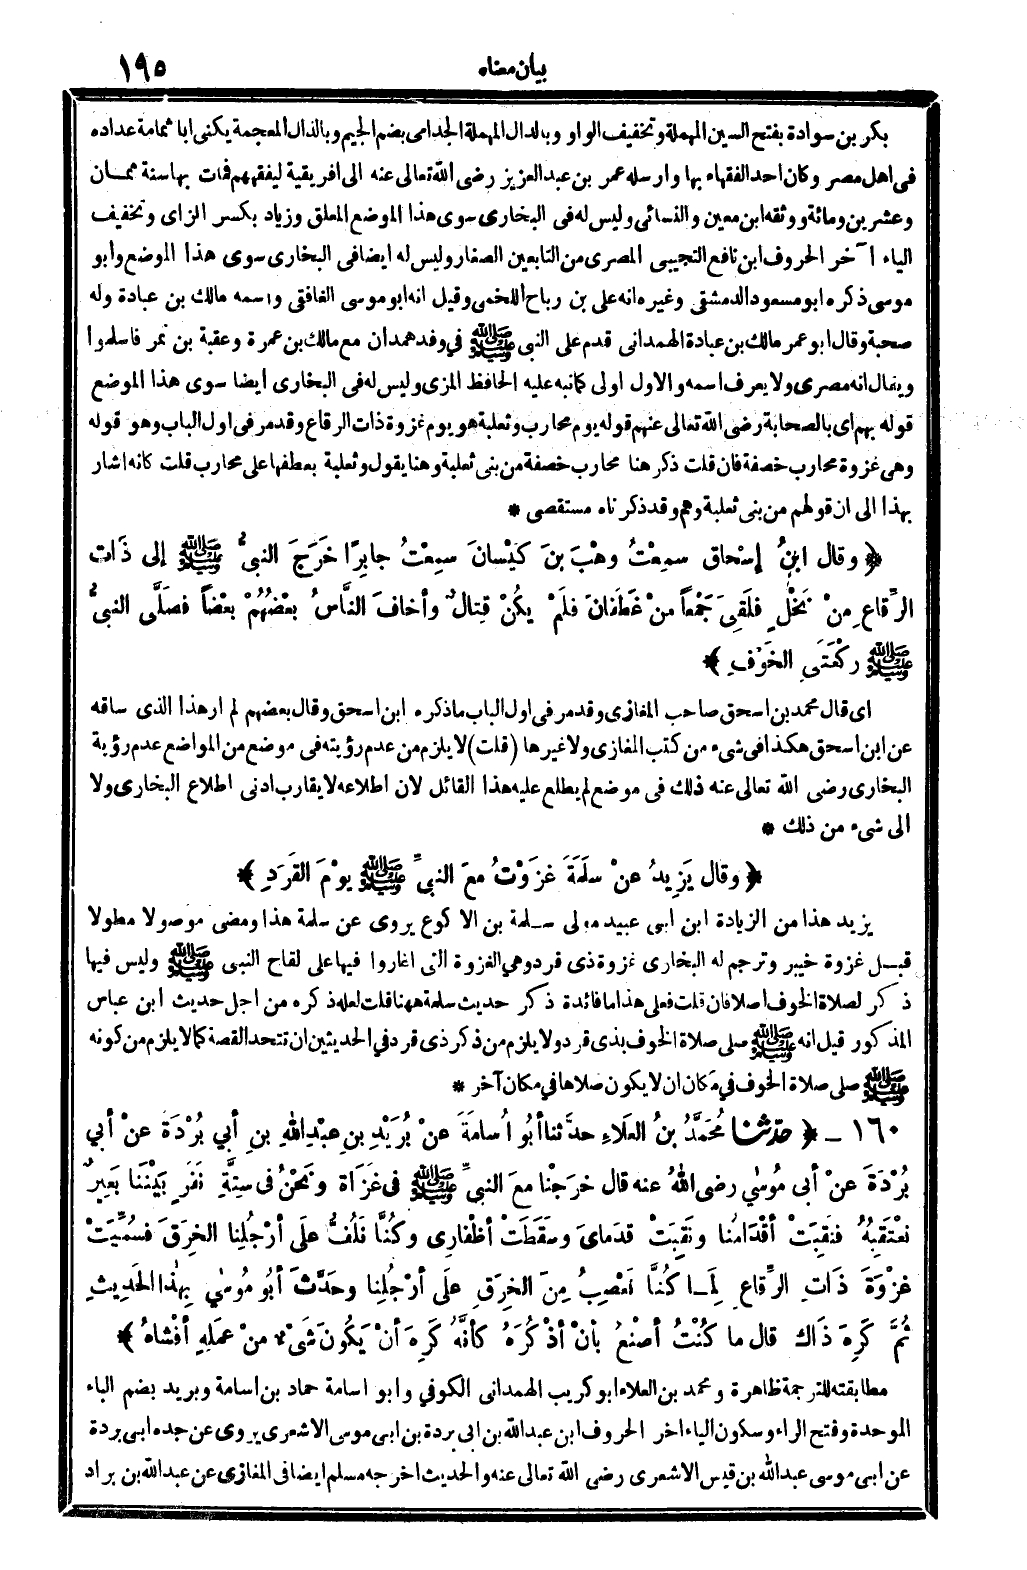 بيان معناه ١٩٥
بكر بن سوادة بفتح السين المهملة وتخفيف الواو وبالدال المهملة الجذامى بضم الجيم وبالذال المعجمة يكنى ابا ثمامة عداده
فى اهل مصر وكان احد الفقهاء بها وارسله عمر بن عبد العزيز رضى الله تعالى عنه الى افريقية ليفقههم فمات بها سنة ثمــان
وعشرين ومائة ووثقه ابن معين والنسائى وليس له فى البخارى سوى هذا الموضع المعلق وزياد بكسر الزاى وتخفيف
الياء آخر الحروف ابن نافع التجيبى المصرى من التابعين الصغار وليس له ايضا فى البخارى سوى هذا الموضع وأبو
موسى ذكره ابو مسعود الدمشقى وغيره انه على بن رباح اللخمى وقيل انه ابو موسى الغافقى واسمه مالك بن عبادة وله
صحبة وقال ابو عمر مالك بن عبادة الهمدانى قدم على النبى ﷺ في وفد همدان مع مالك بن عمرة وعقبة بن نمر فاسلموا
ويقال انه مصرى ولا يعرف اسمه والاول اولى كمانبه عليه الحافظ المزى وليس له فى البخارى ايضا سوى هذا الموضع
قوله بهم اى بالصحابة رضى الله تعالى عنهم قوله يوم محارب وثعلبة هو يوم غزوة ذات الرقاع وقد مر فى اول الباب وهو قوله
وهى غزوة محارب خصفة فان قلت ذكر هنا محارب خصفة من بنى ثعلبة وهنا يقول وثعلبة بعطفها على محارب قلت كانه اشار
بهذا الى ان قولهم من بنى ثعلبة وهم وقد ذكرناه مستقصى *
﴿ وقال ابنُ إِسْحاق سمِعْتُ وهْبَ بنَ كَيْسانَ سمِعْتُ جابِرًا خَرَجَ النبيُّ ﷺ إلى ذَات
الرِّقاعِ مِنْ نَخْلٍ فلَقِيَ جَمْعاً مِنْ غَطَفانَ فلَمْ يكُنْ قِتالٌ وأخافَ النَّاسُ بعْضُهُمْ بعْضاً فصَلَّى النبيُّ
ﷺ ركْعَتَىِ الخَوْفِ ﴾
اى قال محمد بن اسحق صاحب المغازى وقد مر فى اول الباب ما ذكره ابن اسحق وقال بعضهم لم ار هذا الذى ساقه
عن ابن اسحق هكذا فى شىء من كتب المغازى ولا غيرها (قلت) لا يلزم من عدم رؤيته فى موضع من المواضع عدم رؤية
البخارى رضى الله تعالى عنه ذلك فى موضع لم يطلع عليه هذا القائل لان اطلاعه لا يقارب ادنى اطلاع البخارى ولا
الى شىء من ذلك *
﴿ وقال يَزِيدُ عنْ سلَمَةَ غزَوْتُ معَ النبيِّ ﷺ يوْمَ القَرَدِ ﴾
يزيد هذا من الزيادة ابن ابى عبيد مولى سـلمة بن الاكوع يروى عن سلمة هذا ومضى موصولا مطولا
قبـل غزوة خيبر وترجم له البخارى غزوة ذى قرد وهي الغزوة التى اغاروا فيها على لقاح النبى ﷺ وليس فيها
ذكر لصلاة الخوف اصلا فان قلت فعلى هذا ما فائدة ذكر حديث سلمة ههنا قلت لعله ذكره من اجل حديث ابن عباس
المذكور قيل انه ﷺ صلى صلاة الخوف بذى قرد ولا يلزم من ذكر ذى قرد في الحديثين ان تتحد القصة كما لا يلزم من كونه
ﷺ صلى صلاة الخوف في مكان ان لا يكون صلاها في مكان آخر *
١٦٠ ــ ﴿ حدثنا مُحَمَّدُ بنُ العلاَءِ حدَّثنا أبُو أُسامَةَ عنْ بُرَيْدِ بنِ عبْدِ اللهِ بنِ أبي بُرْدَةَ عنْ أبي
بُرْدَةَ عنْ أبى مُوسٰى رضى اللهُ عنه قال خرَجْنا معَ النبيِّ ﷺ فى غَزَاة ونَحْنُ فى سِتَّةِ نفَرٍ بيْنَنَا بَعِيرٌ
نعْتَقِبُهُ فنَقِبَتْ أقْدَامُنا ونَقِبَتْ قدَماىَ وسقَطَتْ أظْفارِى وكُنَّا نَلُفُّ علَى أرْجُلِنا الخِرَقَ فسُمِّيَتْ
غزْوَةَ ذَاتِ الرِّقاعِ لِمَــا كُنَّا نَعْصِبُ مِنَ الخِرَقِ علَى أرْجُلِنا وحَدَّثَ أبُو مُوسٰي بِهٰذا الحَدِيثِ
ثُمَّ كَرِهَ ذَاكَ قال ما كُنْتُ أصْنَعُ بأنْ أذْكُرَهُ كأنَّهُ كَرِهَ أنْ يَكُونَ شَىْءٌ منْ عمَلِهِ أفْشاهُ ﴾
مطابقته للترجمة ظاهرة ومحمد بن العلاء ابو كريب الهمدانى الكوفي وابو اسامة حماد بن اسامة وبريد بضم الباء
الموحدة وفتح الراء وسكون الياء اخر الحروف ابن عبد الله بن ابى بردة بن ابى موسى الاشعرى يروى عن جده ابى بردة
عن ابى موسى عبد الله بن قيس الاشعرى رضى الله تعالى عنه والحديث اخرجه مسلم ايضا فى المغازى عن عبد الله بن براد